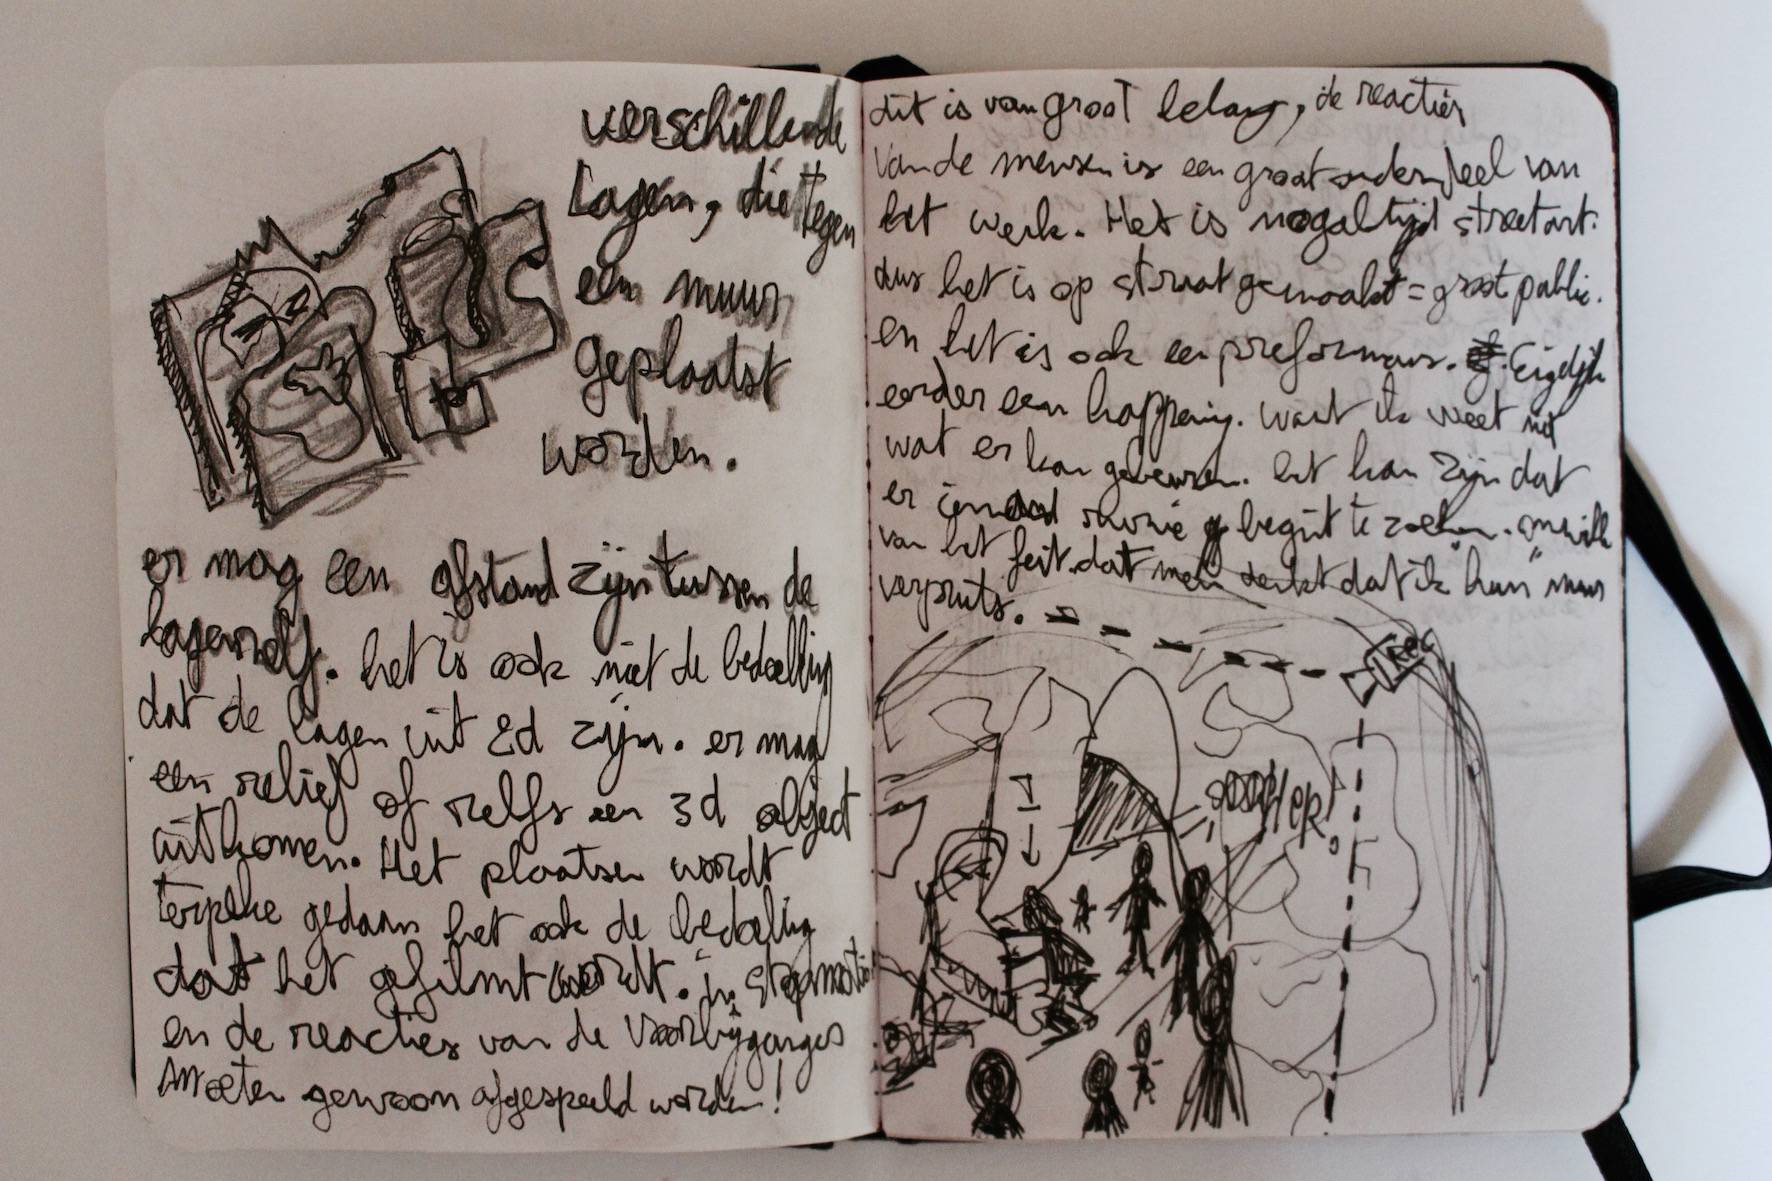 verschillende
lagen, die tegen
een muur
geplaatst
worden.
er mag een afstand zijn tussen de
lagen zelf. het is ook niet de bedoeling
dat de lagen uit 2d zijn. er mag
een relief of zelfs een 3d object
uitkomen. Het plaatsen wordt
terpleke gedaan het ook de bedoeling
dat het gefilmt wordt. in stopmotion
en de reacties van de voorbijgangers
moeten gewoon afgespeeld worden!
dit is van groot belang, de reacties
van de mensen is een groot onderdeel van
het werk. Het is nog altijd streetart.
dus het is op straat gemaakt = groot public.
en het is ook een preformans. Eigelijk
eerder een happening. want ik weet niet
wat er kan gebeuren. het kan zijn dat
er iemand ruzie begint te zoeken. omwille
van het feit dat men denkt dat ik "hun" muur
verpruts.
REC